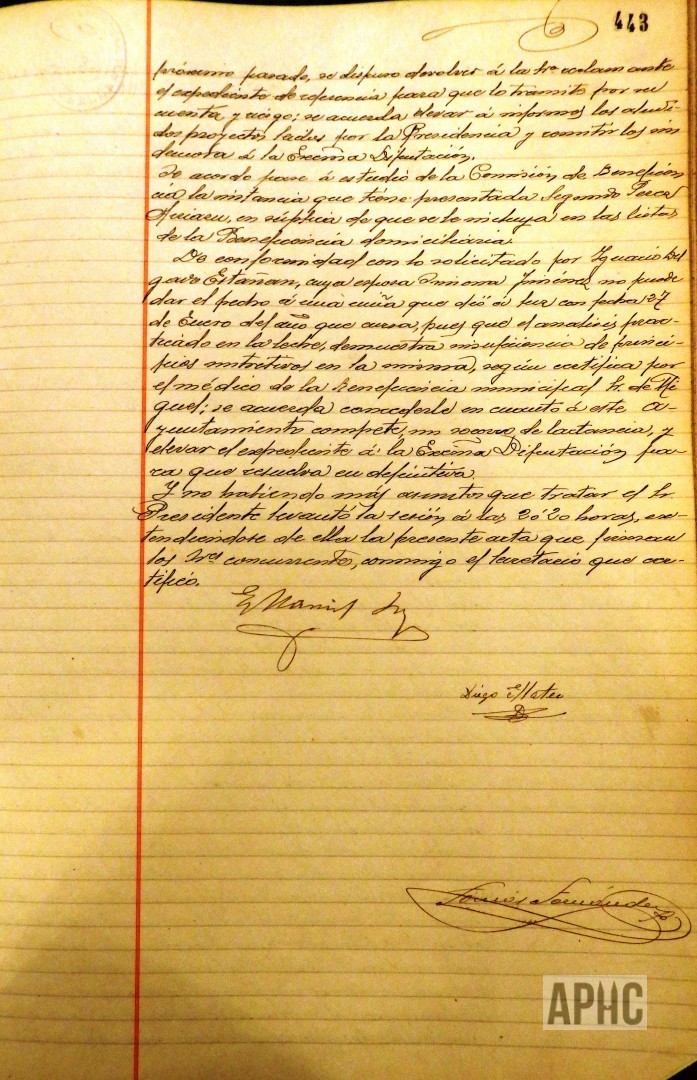 443
próximo pasado, se dispuso devolver á la Sra reclamante
el expediente de referencia para que lo tramite por su
cuenta y riesgo; se acuerda elevar á informes los aludi-
dos proyectos leidos por la Presidencia y remitirlos sin
demora á la Excma Diputación.
Se acordo pase á estudio de la Comisión de Beneficen-
cia la instancia que tiene presentada Segundo Perez
en súplica de que se le incluya en las listas
de la Beneficencia domiciliaria.
De conformidad con lo solicitado por Ignacio Del
gado Estañan, cuya esposa Jiménez no puede
dar el pecho á una niña que dió á luz con fecha 27
de Enero del año que cursa, pues que el analisis prac-
ticado en la leche, demuestra insuficiencia de princi-
pios nutritivos en la misma, según certifica por
el médico de la Beneficencia municipal Sr. de Mi
guel; se acuerda concederle en cuanto á este A-
yuntamiento compete, un socorro de lactancia, y
elevar el expediente á la Excma Diputación pa-
ra que resuelva en definitiva.
Y no habiendo más asuntos que tratar el Sr.
Presidente levantó la sesión á las 20 horas, ex-
tendiéndose de ella la presente acta que firman
los Sres concurrentes, conmigo el Secretario que cer-
tifico.
Diego Mateo
Fernández
APHC